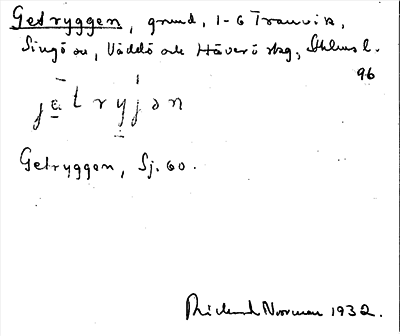 Getryggen, grund, 1-6 Tranvik,
Singö sn, Väddö och Häverö skg, Sthlms l.
96
jètryjən
Getryggen, Sj. 60.
Rickard Norrman 1932.